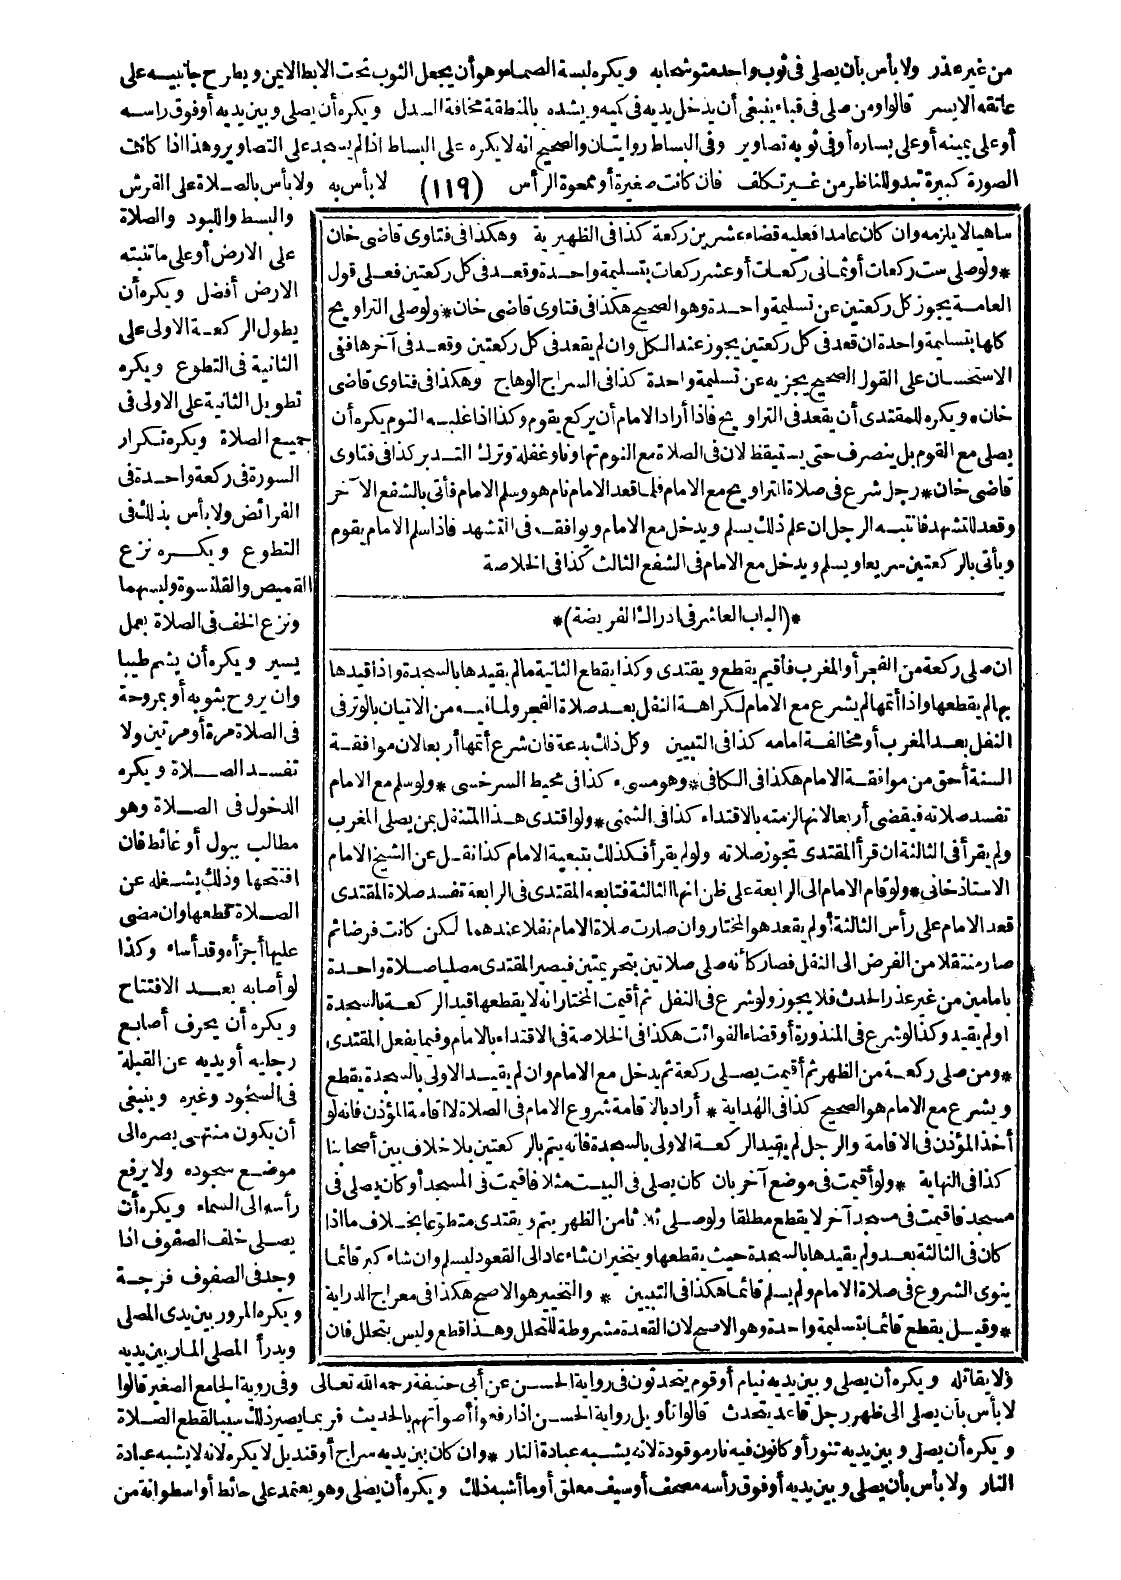 من غير عذر ولا بأس بأن يصلى فى ثوب واحد متوشحا به ويكره لبسة الصماء وهو أن يجعل الثوب تحت الابط الايمن ويطرح جانبيه على
عاتقه الايسر قالوا ومن صلى فى قباء ينبغى أن يدخل يديه فى كميه ويشده بالمنطقة مخافة السدل ويكره أن يصلى وبين يديه أو فوق رأسه
أو على يمينه أو على يساره أو فى ثوبه تصاوير وفى البساط روايتان والصحيح انه لا يكره على البساط اذا لم يسجد على التصاوير وهذا اذا كانت
الصورة كبيرة تبدو للناظر من غير تكلف فان كانت صغيرة أو ممحوة الرأس (١١٩) لا بأس به ولا بأس بالصلاة على الفرش
والبسط واللبود والصلاة
على الارض أو على ما تنبته
الارض أفضل ويكره أن
يطول الركعة الاولى على
الثانية فى التطوع ويكره
تطويل الثانية على الاولى فى
جميع الصلاة ويكره تكرار
السورة فى ركعة واحدة فى
الفرائض ولا بأس بذلك فى
التطوع ويكره نزع
القميص والقلنسوة ولبسهما
ونزع الخف فى الصلاة بعمل
يسير ويكره أن يشم طيبا
وان يروح بثوبه أو بمروحة
فى الصلاة مرة أو مرتين ولا
تفسد الصلاة ويكره
الدخول فى الصلاة وهو
مطالب ببول أو غائط فان
افتتحها وذلك يشغله عن
الصلاة قطعها وان مضى
عليها أجزأه وقد أساء وكذا
لو أصابه بعد الافتتاح
ويكره أن يحرف أصابع
رجليه أو يديه عن القبلة
فى السجود وغيره وينبغى
أن يكون منتهى بصره الى
موضع سجوده ولا يرفع
رأسه الى السماء ويكره أن
يصلى خلف الصفوف اذا
وجد فى الصفوف فرجة
ويكره المرور بين يدى المصلى
ويدرأ المصلى المار بين يديه
ساهيا لا يلزمه وان كان عامدا فعليه قضاء عشرين ركعة كذا فى الظهيرية وهكذا فى فتاوى قاضى خان
* ولو صلى ست ركعات أو ثمانى ركعات أو عشر ركعات بتسليمة واحدة وقعد فى كل ركعتين فعلى قول
العامة يجوز كل ركعتين عن تسليمة واحدة وهو الصحيح هكذا فى فتاوى قاضى خان * ولو صلى التراويح
كلها بتسليمة واحدة ان قعد فى كل ركعتين يجوز عند الكل وان لم يقعد فى كل ركعتين وقعد فى آخرها ففى
الاستحسان على القول الصحيح يجزيه عن تسليمة واحدة كذا فى السراج الوهاج وهكذا فى فتاوى قاضى
خان * ويكره للمقتدى أن يقعد فى التراويح فاذا أراد الامام أن يركع يقوم وكذا اذا غلبه النوم يكره أن
يصلى مع القوم بل ينصرف حتى يستيقظ لان فى الصلاة مع النوم تهاونا وغفلة وترك التدبر كذا فى فتاوى
قاضى خان * رجل شرع فى صلاة التراويح مع الامام فلما قعد الامام نام هو وسلم الامام فأتى بالشفع الآخر
وقعد للتشهد فانتبه الرجل ان علم ذلك يسلم ويدخل مع الامام ويوافقه فى التشهد فاذا سلم الامام يقوم
ويأتى بالركعتين سريعا ويسلم ويدخل مع الامام فى الشفع الثالث كذا فى الخلاصة
* (الباب العاشر فى ادراك الفريضة) *
ان صلى ركعة من الفجر أو المغرب فأقيم يقطع ويقتدى وكذا يقطع الثانية مالم يقيدها بالسجدة واذا قيدها
بها لم يقطعها واذا أتمها لم يشرع مع الامام لكراهة النفل بعد صلاة الفجر ولما فيه من الاتيان بالوتر فى
النفل بعد المغرب أو مخالفة امامه كذا فى التبيين وكل ذلك بدعة فان شرع أتمها أربعا لان موافقة
السنة أحق من موافقة الامام هكذا فى الكافى * وهو مسىء كذا فى محيط السرخسى * ولو سلم مع الامام
تفسد صلاته فيقضى أربعا لانها لزمته بالاقتداء كذا فى الشمنى * ولو اقتدى هذا المتنفل بمن يصلى المغرب
ولم يقرأ فى الثالثة ان قرأ المقتدى تجوز صلاته ولو لم يقرأ فكذلك بتبعية الامام كذا نقل عن الشيخ الامام
الاستاذ خانى * ولو قام الامام الى الرابعة على ظن انها الثالثة فتابعه المقتدى فى الرابعة تفسد صلاة المقتدى
قعد الامام على رأس الثالثة أو لم يقعد هو المختار وان صارت صلاة الامام نفلا عندهما لكن كانت فرضا ثم
صار منتقلا من الفرض الى النفل فصار كأنه صلى صلاتين بتحريمتين فيصير المقتدى مصليا صلاة واحدة
بامامين من غير عذر الحدث فلا يجوز ولو شرع فى النفل ثم أقيمت المختار انه لا يقطعها قيد الركعة بالسجدة
اولم يقيد وكذا لو شرع فى المنذورة أو قضاء الفوائت هكذا فى الخلاصة فى الاقتداء بالامام وفيما يفعل المقتدى
* ومن صلى ركعة من الظهر ثم أقيمت يصلى ركعة ثم يدخل مع الامام وان لم يقيد الاولى بالسجدة يقطع
ويشرع مع الامام هو الصحيح كذا فى الهداية * أراد بالاقامة شروع الامام فى الصلاة لا اقامة المؤذن فانه لو
أخذ المؤذن فى الاقامة والرجل لم يقيد الركعة الاولى بالسجدة فانه يتم بالركعتين بلا خلاف بين أصحابنا
كذا فى النهاية * ولو أقيمت فى موضع آخر بان كان يصلى فى البيت مثلا فاقيمت فى المسجد أو كان يصلى فى
مسجد فاقيمت فى مسجد آخر لا يقطع مطلقا ولو صلى ثلاثا من الظهر يتم ويقتدى متطوعا بخلاف ما اذا
كان فى الثالثة بعد ولم يقيدها بالسجدة حيث يقطعها ويتخير ان شاء عاد الى القعود ليسلم وان شاء كبر قائما
ينوى الشروع فى صلاة الامام ولم يسلم قائما هكذا فى التبيين * والتخيير هو الاصح هكذا فى معراج الدراية
* وقيل يقطع قائما بتسليمة واحدة وهو الاصح لان القعدة مشروطة للتحلل وهذا قطع وليس بتحلل فان
ولا يقاتله ويكره أن يصلى وبين يديه نيام أو قوم يتحدثون فى رواية الحسن عن أبى حنيفة رحمه الله تعالى وفى رواية الجامع الصغير قالوا
لا بأس بأن يصلى الى ظهر رجل قاعد يتحدث قالوا تأويل رواية الحسن اذا رفعوا أصواتهم بالحديث فربما يصير ذلك سببا لقطع الصلاة
ويكره أن يصلى وبين يديه تنور أو كانون فيه نار موقودة لانه يشبه عبادة النار * وان كان بين يديه سراج أو قنديل لا يكره لانه لا يشبه عبادة
النار ولا بأس بأن يصلى وبين يديه أو فوق رأسه مصحف أو سيف معلق أو ما أشبه ذلك ويكره أن يصلى وهو يعتمد على حائط أو اسطوانة من